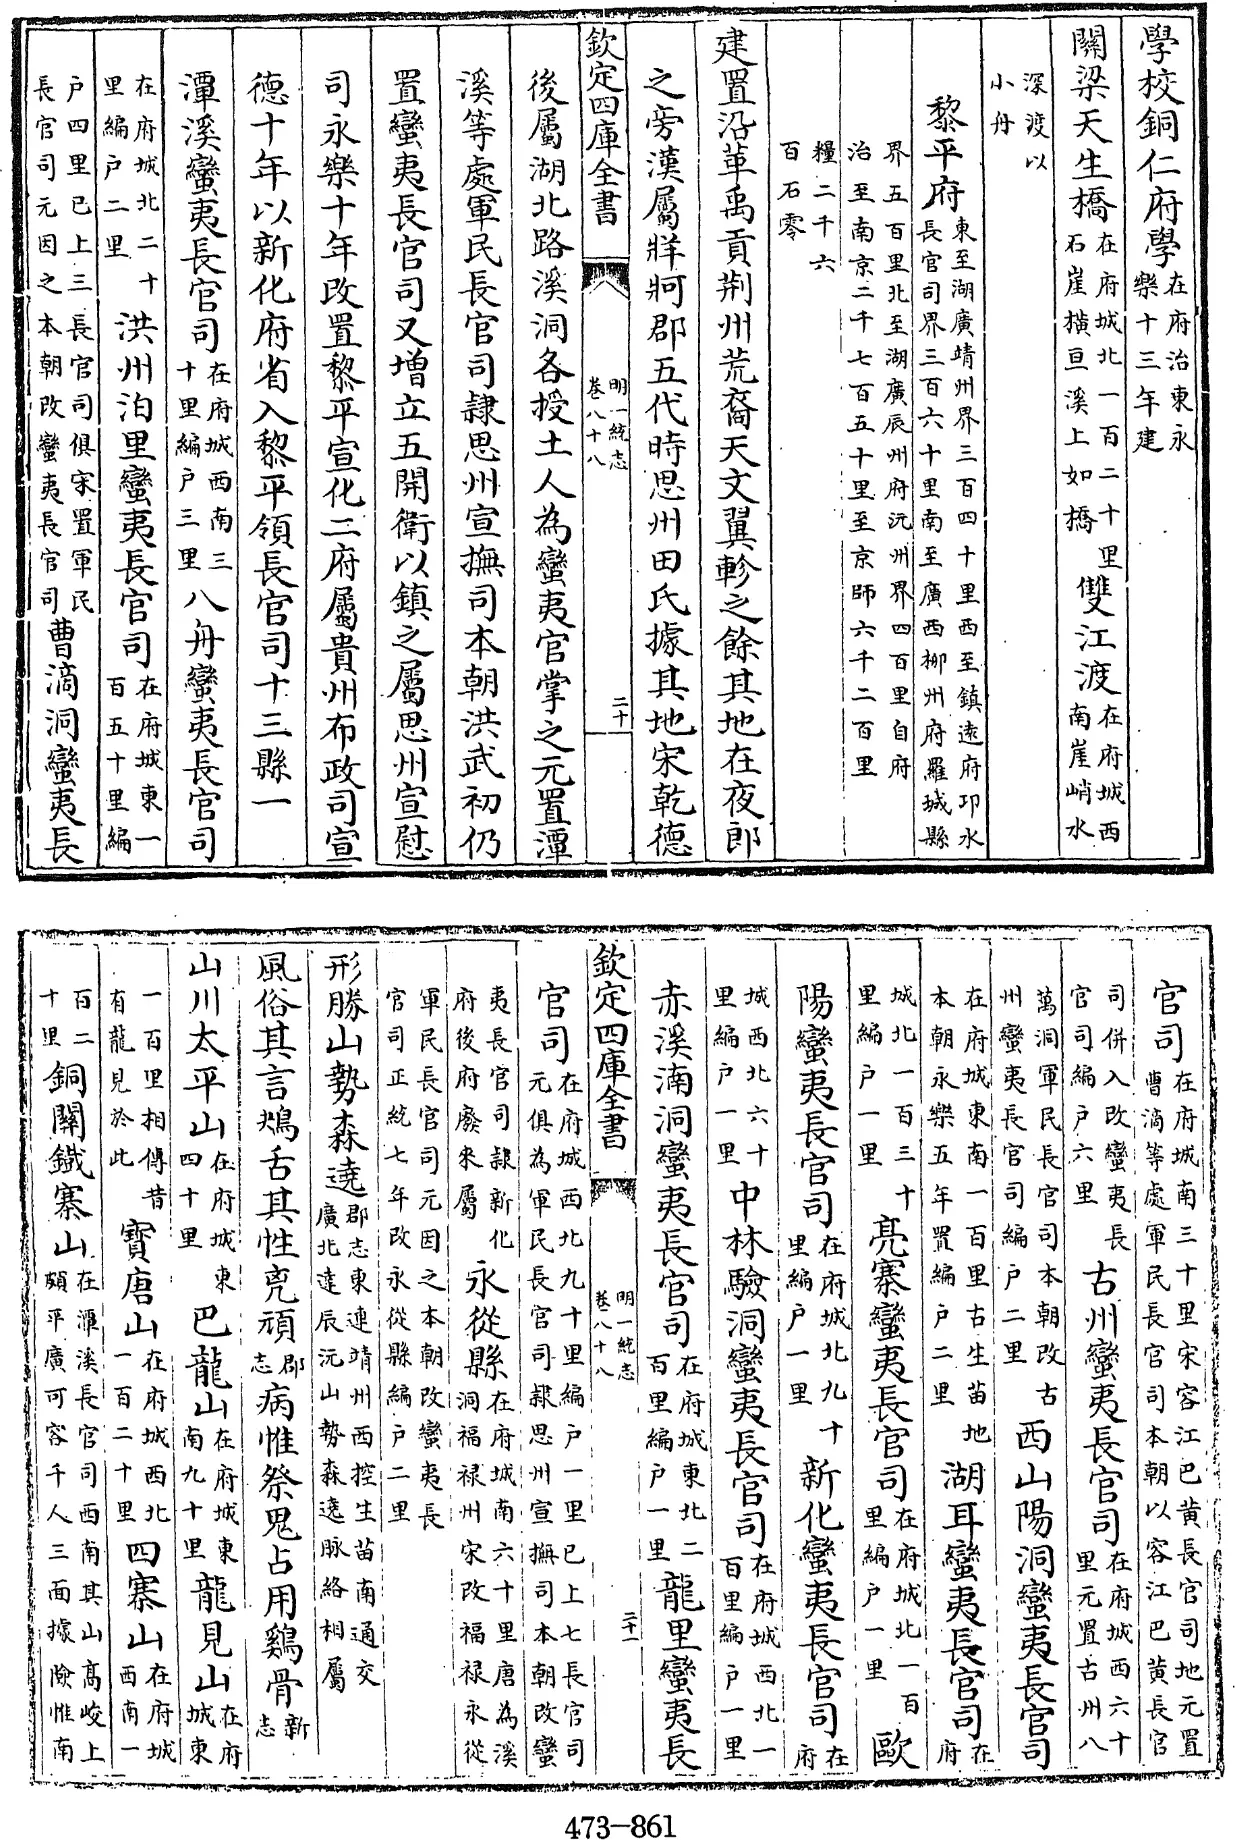 學校銅仁府學在府治東永
樂十三年建
關梁天生橋在府城北一百二十里
石崖橫亘溪上如橋雙江渡在府城西
南崖峭水
深渡以
小舟
黎平府東至湖廣靖州界三百四十里西至鎮遠府卭水
長官司界三百六十里南至廣西栁州府羅城縣
界五百里北至湖廣辰州府沅州界四百里自府
治至南京二千七百五十里至京師六千二百里
糧二千六
百石零
建置沿革禹貢荆州荒裔天文翼軫之餘其地在夜郎
之旁漢屬牂牁郡五代時思州田氏據其地宋乾德
欽定四庫全書
明一統志
卷八十八
二十
後屬湖北路溪洞各授土人為蠻夷官掌之元置潭
溪等處軍民長官司隷思州宣撫司本朝洪武初仍
置蠻夷長官司又增立五開衛以鎮之屬思州宣慰
司永樂十年改置黎平宣化二府屬貴州布政司宣
德十年以新化府省入黎平領長官司十三縣一
潭溪蠻夷長官司在府城西南三
十里編户三里八舟蠻夷長官司
在府城北二十
里編户二里洪州泊里蠻夷長官司在府城東一
百五十里編
户四里已上三長官司俱宋置軍民
長官司元因之本朝改蠻夷長官司曹滴洞蠻夷長
官司在府城南三十里宋容江巴黄長官司地元置
曹滴等處軍民長官司本朝以容江巴黄長官
司併入改蠻夷長
官司編户六里古州蠻夷長官司在府城西六十
里元置古州八
萬洞軍民長官司本朝改古
州蠻夷長官司編户二里西山陽洞蠻夷長官司
在府城東南一百里古生苗地
本朝永樂五年置編户二里湖耳蠻夷長官司在
府
城北一百三十
里編户一里亮寨蠻夷長官司在府城北一百
里編户一里歐
陽蠻夷長官司在府城北九十
里編户一里新化蠻夷長官司在
府
城西北六十
里編户一里中林驗洞蠻夷長官司在府城西北一
百里編户一里
赤溪湳洞蠻夷長官司在府城東北二
百里編户一里龍里蠻夷長
欽定四庫全書
明一統志
卷八十八
二十一
官司在府城西北九十里編户一里已上七長官司
元俱為軍民長官司隷思州宣撫司本朝改蠻
夷長官司隷新化
府後府廢來屬永從縣在府城南六十里唐為溪
洞福禄州宋改福禄永從
軍民長官司元因之本朝改蠻夷長
官司正統七年改永從縣編户二里
形勝山勢森遶郡志東連靖州西控生苗南通交
廣北達辰沅山勢森遶脉絡相屬
風俗其言鴂舌其性兇頑郡
志病惟祭鬼占用鷄骨新
志
山川太平山在府城東
四十里巴龍山在府城東
南九十里龍見山在府
城東
一百里相傳昔
有龍見於此寳唐山在府城西北
一百二十里四寨山在府城
西南一
百二
十里銅關鐵寨山在潭溪長官司西南其山髙峻上
頗平廣可容千人三面據險惟南
473-861